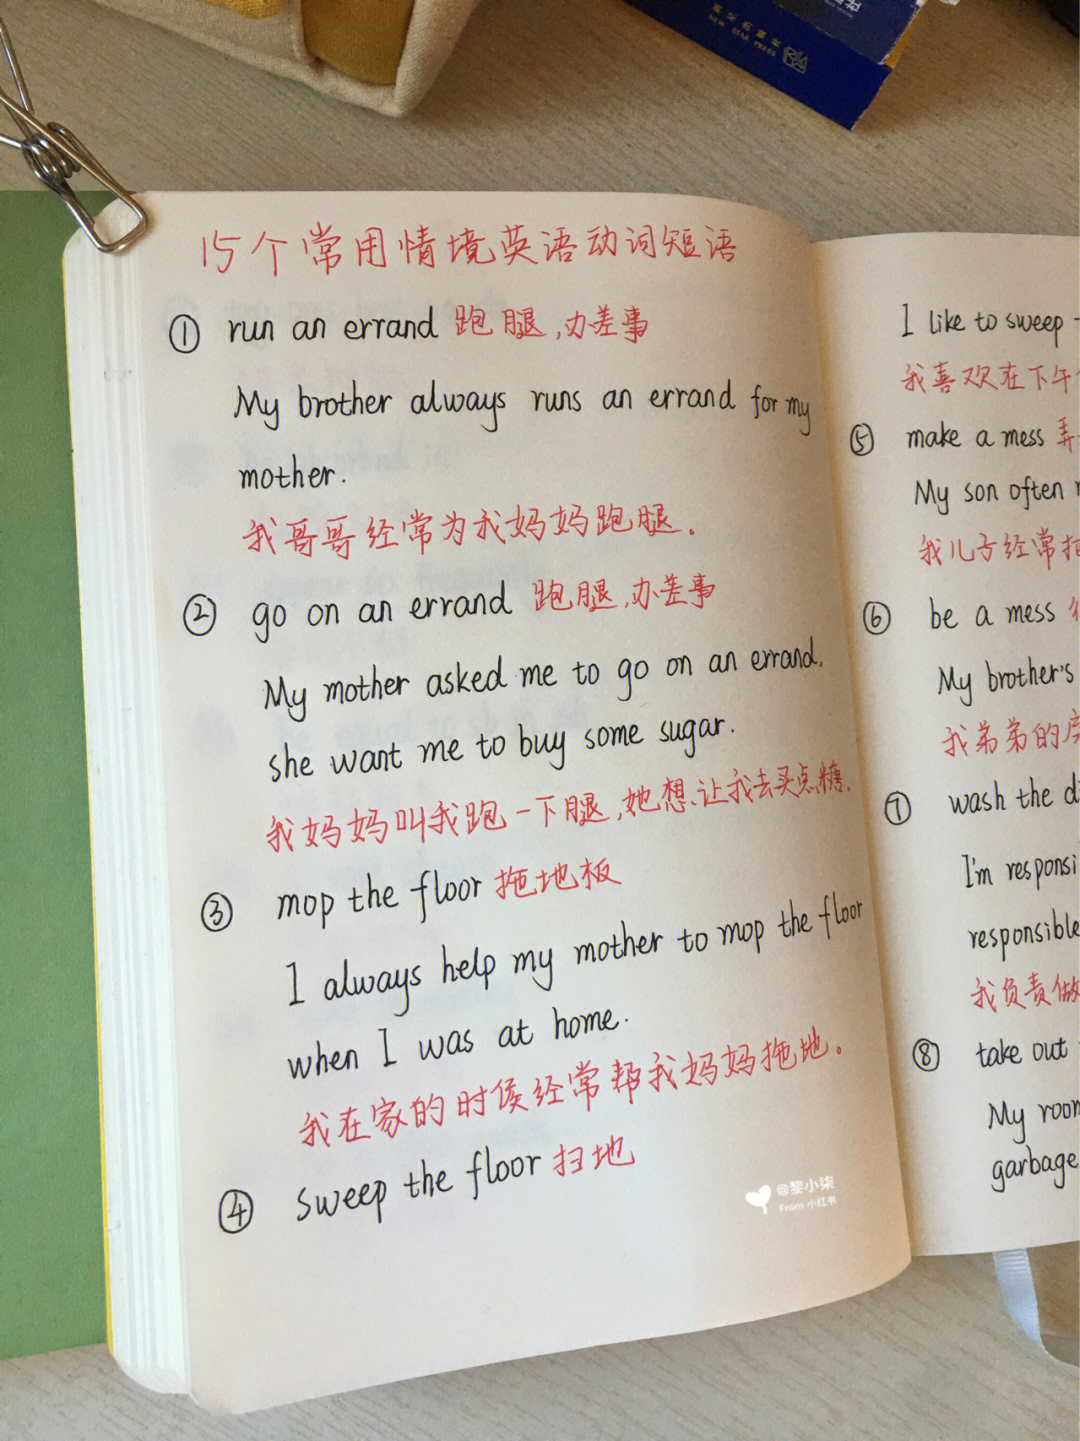 NEW STAR PRESS
15个常用情境英语动词短语
① run an errand 跑腿,办差事
My brother always runs an errand for my
mother.
我哥哥经常为我妈妈跑腿.
② go on an errand 跑腿,办差事
My mother asked me to go on an errand,
she want me to buy some sugar.
我妈妈叫我跑一下腿,她想让我去买点糖.
③ mop the floor 拖地板
I always help my mother to mop the floor
when I was at home.
我在家的时候经常帮我妈妈拖地。
④ sweep the floor 扫地
@黎小柒
From 小红书
I like to sweep
我喜欢在下午
⑤ make a mess 弄
My son often
我儿子经常把
⑥ be a mess
My brother's
我弟弟的房
⑦ wash the d
I'm responsi
responsible
我负责做
⑧ take out
My room
garbage